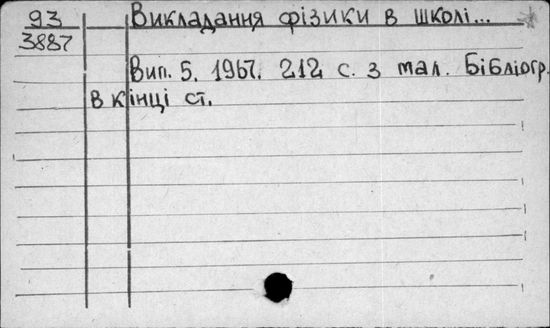 93
3887
Викладання фізики в школі...
Вип. 5. 1967. 212 с. з мал. Бібліогр.
в кінці ст.